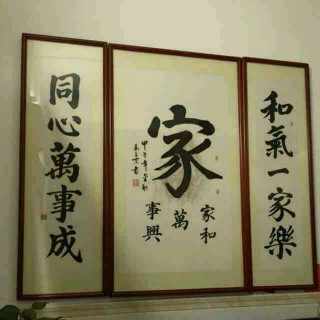 和氣一家樂
家
家和
萬
事興
甲午年金秋
同心萬事成